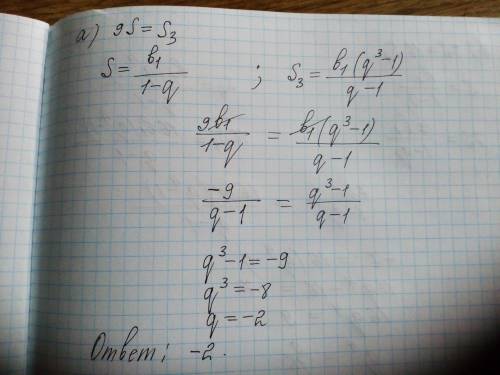 а) 9S = S₃
S = b₁/(1-q) ; S₃ = b₁(q³-1)/(q-1)
9b₁/(1-q) = b₁(q³-1)/(q-1)
-9/(q-1) = (q³-1)/(q-1)
q³-1 = -9
q³ = -8
q = -2
Ответ: -2.